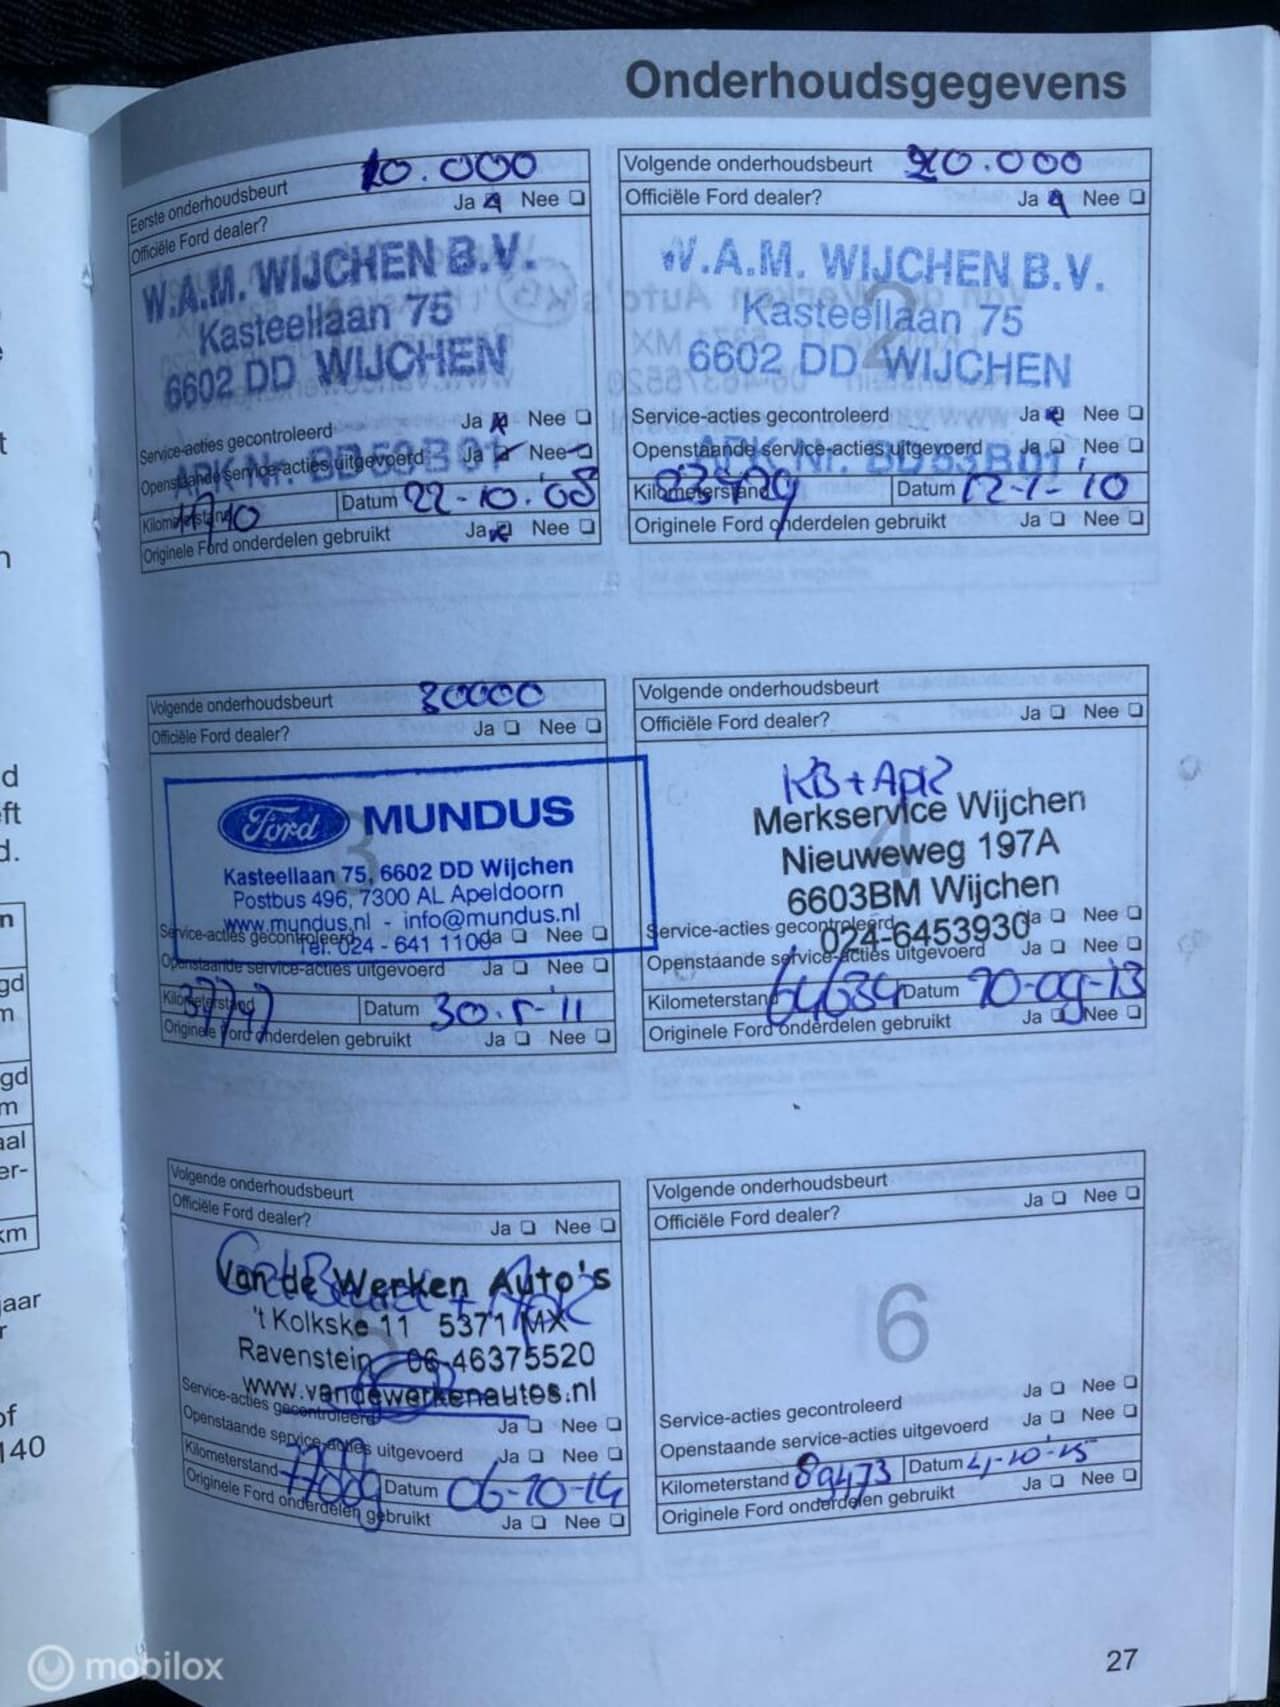 Onderhoudsgegevens
Eerste onderhoudsbeurt 10.000
Officiële Ford dealer? Ja Nee
W.A.M. WIJCHEN B.V.
Kasteellaan 75
6602 DD WIJCHEN
Service-acties gecontroleerd Ja Nee
Openstaande service-acties uitgevoerd Ja Nee
APK Nr. BD53B01
Kilometerstand Datum 22-10.'08
Originele Ford onderdelen gebruikt Ja Nee
Volgende onderhoudsbeurt 20.000
Officiële Ford dealer? Ja Nee
W.A.M. WIJCHEN B.V.
2
Kasteellaan 75
6602 DD WIJCHEN
Service-acties gecontroleerd Ja Nee
Openstaande service-acties uitgevoerd Ja Nee
APK Nr. BD53B01
Kilometerstand 23479 Datum 12-1-'10
Originele Ford onderdelen gebruikt Ja Nee
Volgende onderhoudsbeurt 30000
Officiële Ford dealer? Ja Nee
3
Ford MUNDUS
Kasteellaan 75, 6602 DD Wijchen
Postbus 496, 7300 AL Apeldoorn
www.mundus.nl - info@mundus.nl
Service-acties gecontroleerd Ja Nee
Tel. 024 - 641 1109
Openstaande service-acties uitgevoerd Ja Nee
Kilometerstand 37797 Datum 30.5-'11
Originele Ford onderdelen gebruikt Ja Nee
Volgende onderhoudsbeurt
Officiële Ford dealer? Ja Nee
KB + APK
4
Merkservice Wijchen
Nieuweweg 197A
6603BM Wijchen
Service-acties gecontroleerd Ja Nee
024-6453930
Openstaande service-acties uitgevoerd Ja Nee
Kilometerstand 64634 Datum 10-09-13
Originele Ford onderdelen gebruikt Ja Nee
Volgende onderhoudsbeurt
Officiële Ford dealer? Ja Nee
Van de Werken Auto's
't Kolkske 11 5371 MX
Ravenstein 06-46375520
www.vandewerkenautos.nl
Service-acties gecontroleerd Ja Nee
Openstaande service-acties uitgevoerd Ja Nee
Kilometerstand 77009 Datum 06-10-14
Originele Ford onderdelen gebruikt Ja Nee
Volgende onderhoudsbeurt
Officiële Ford dealer? Ja Nee
6
Service-acties gecontroleerd Ja Nee
Openstaande service-acties uitgevoerd Ja Nee
Kilometerstand 89473 Datum
Originele Ford onderdelen gebruikt Ja Nee
27
mobilox